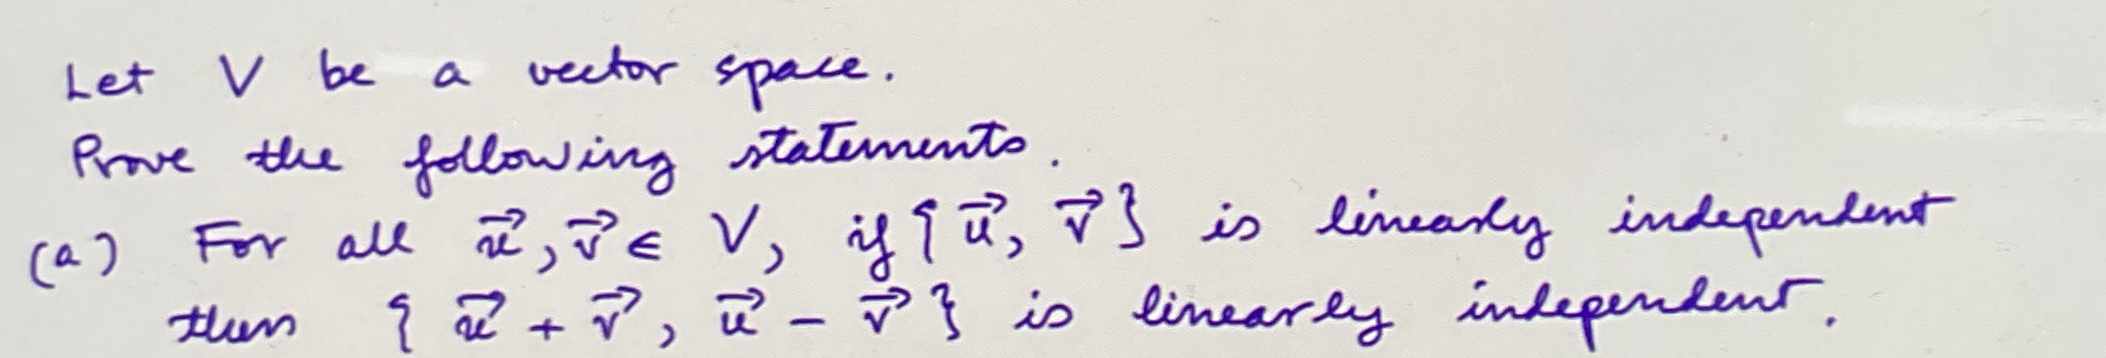 Let V be a vector space.
Prove the following statements.
(a) For all u⃗, v⃗ ∈ V, if {u⃗, v⃗} is linearly independent
then {u⃗ + v⃗, u⃗ - v⃗} is linearly independent.